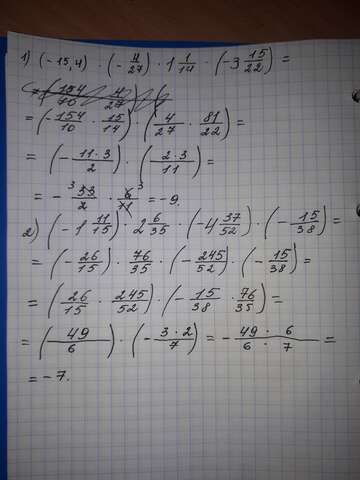 1) (-15,4) · (-4/27) · 1 1/14 · (-3 15/22) =
= (-154/10 · 15/14) (4/27 · 81/22) =
= (-11·3/2) · (2·3/11) =
= -33/2 · 6/11 = -9.
2) (-1 11/15) · 2 6/35 · (-4 37/52) · (-15/38) =
= (-26/15) · 76/35 · (-245/52) · (-15/38) =
= (26/15 · 245/52) · (-15/38 · 76/35) =
= (49/6) · (-3·2/7) = -49·6/6·7 =
= -7.